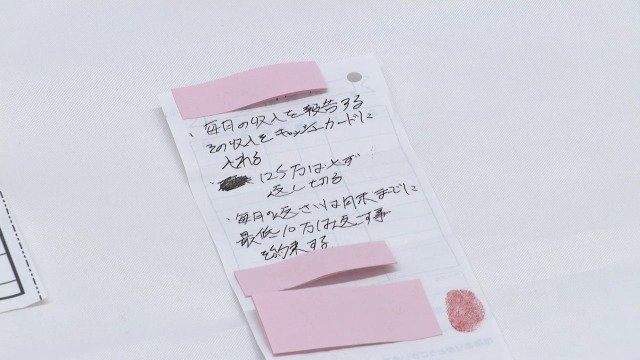 ・毎日の収入を報告する
その収入をキャッシュカードに
入れる
・125万は必ず
返し切る
・毎月の返さいは月末までに
最低10万は返す事
を約束する